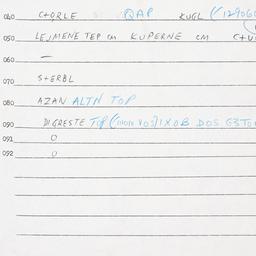 040 C+ORLE QAP KUGL (1290G
050 LEJMENE TEP CM KUPERNE CM C+U
060 —
070 S+ERBL
080 AZAN ALTN TOP
090 DIGRESTE TOP DOS G3TO
091 0
092 0